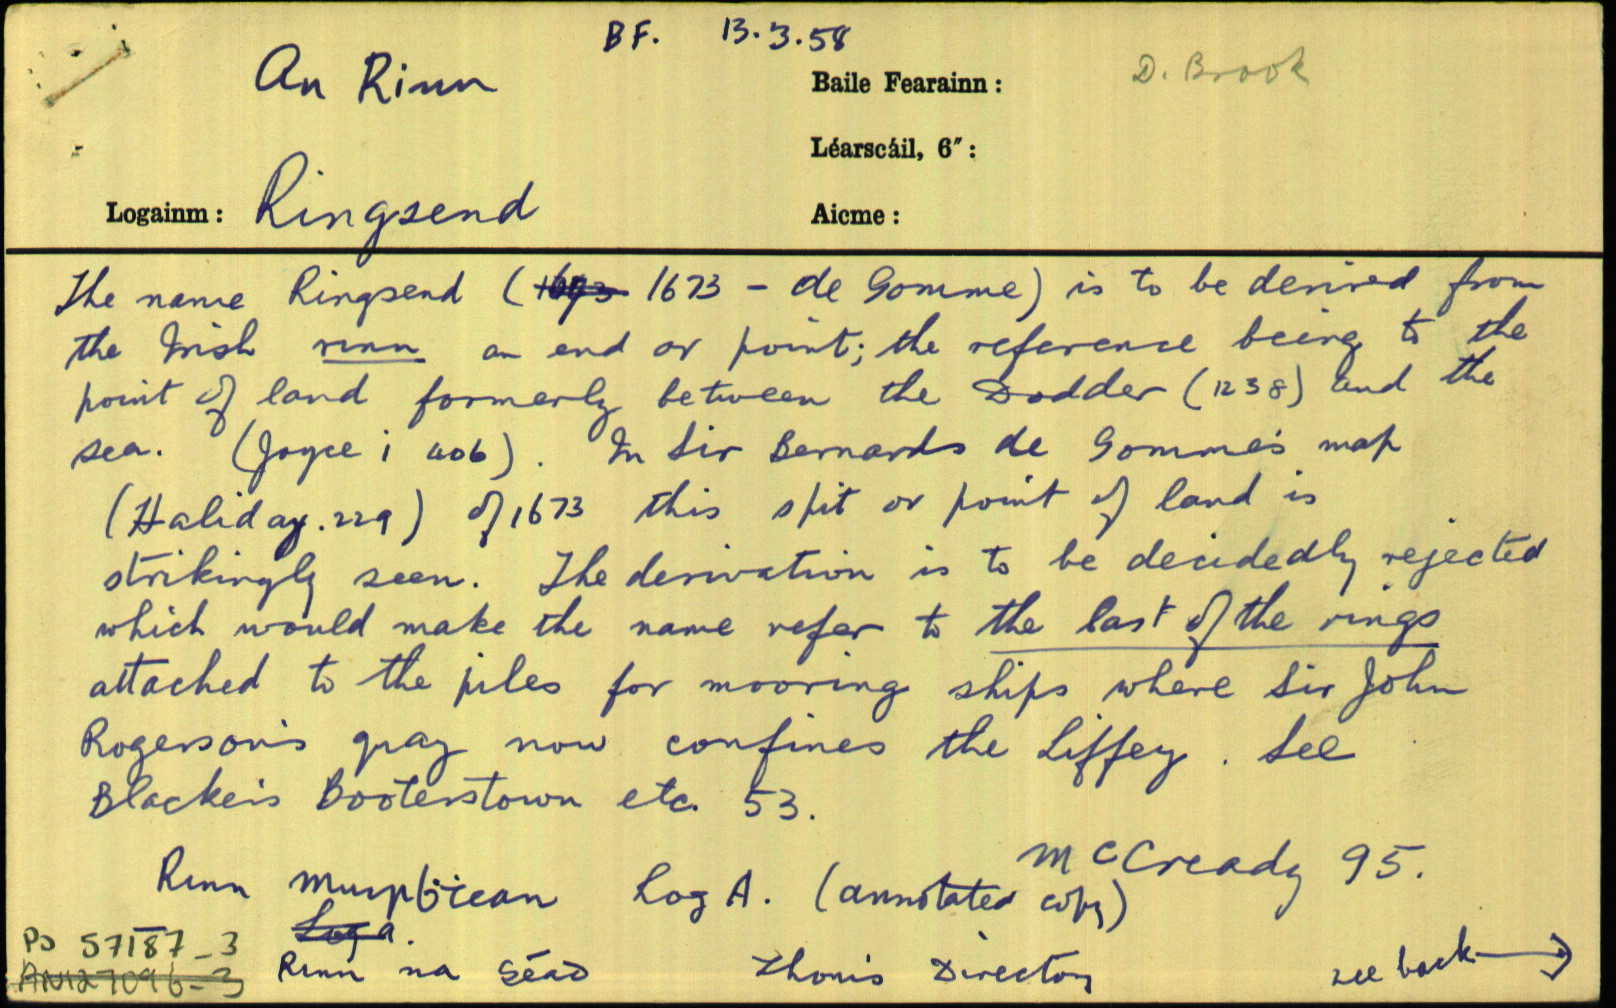 BF. 13.3.58
An Rinn
Baile Fearainn :
D. Brook
Léarscáil, 6″ :
Logainm : Ringsend
Aicme :
The name Ringsend (1673 - de Gomme) is to be derived from
the Irish rinn an end or point; the reference being to the
point of land formerly between the Dodder (1238) and the
sea. (Joyce i 406). In Sir Bernards de Gomme's map
(Haliday. 229) of 1673 this spit or point of land is
strikingly seen. The derivation is to be decidedly rejected
which would make the name refer to the last of the rings
attached to the piles for mooring ships where Sir John
Rogerson's quay now confines the Liffey. See
Blacker's Booterstown etc. 53.
McCready 95.
Rinn Log A. (annotated copy)
Log a.
PD 57187-3
Rinn na Séad Thom's Directory see back →
AN127096-3